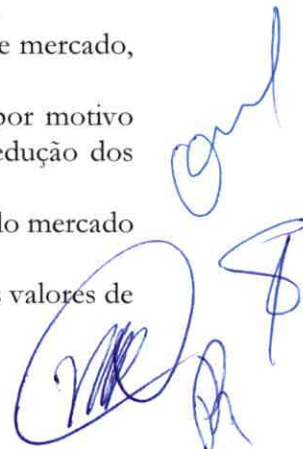 e mercado,
por motivo
edução dos
lo mercado
s valores de